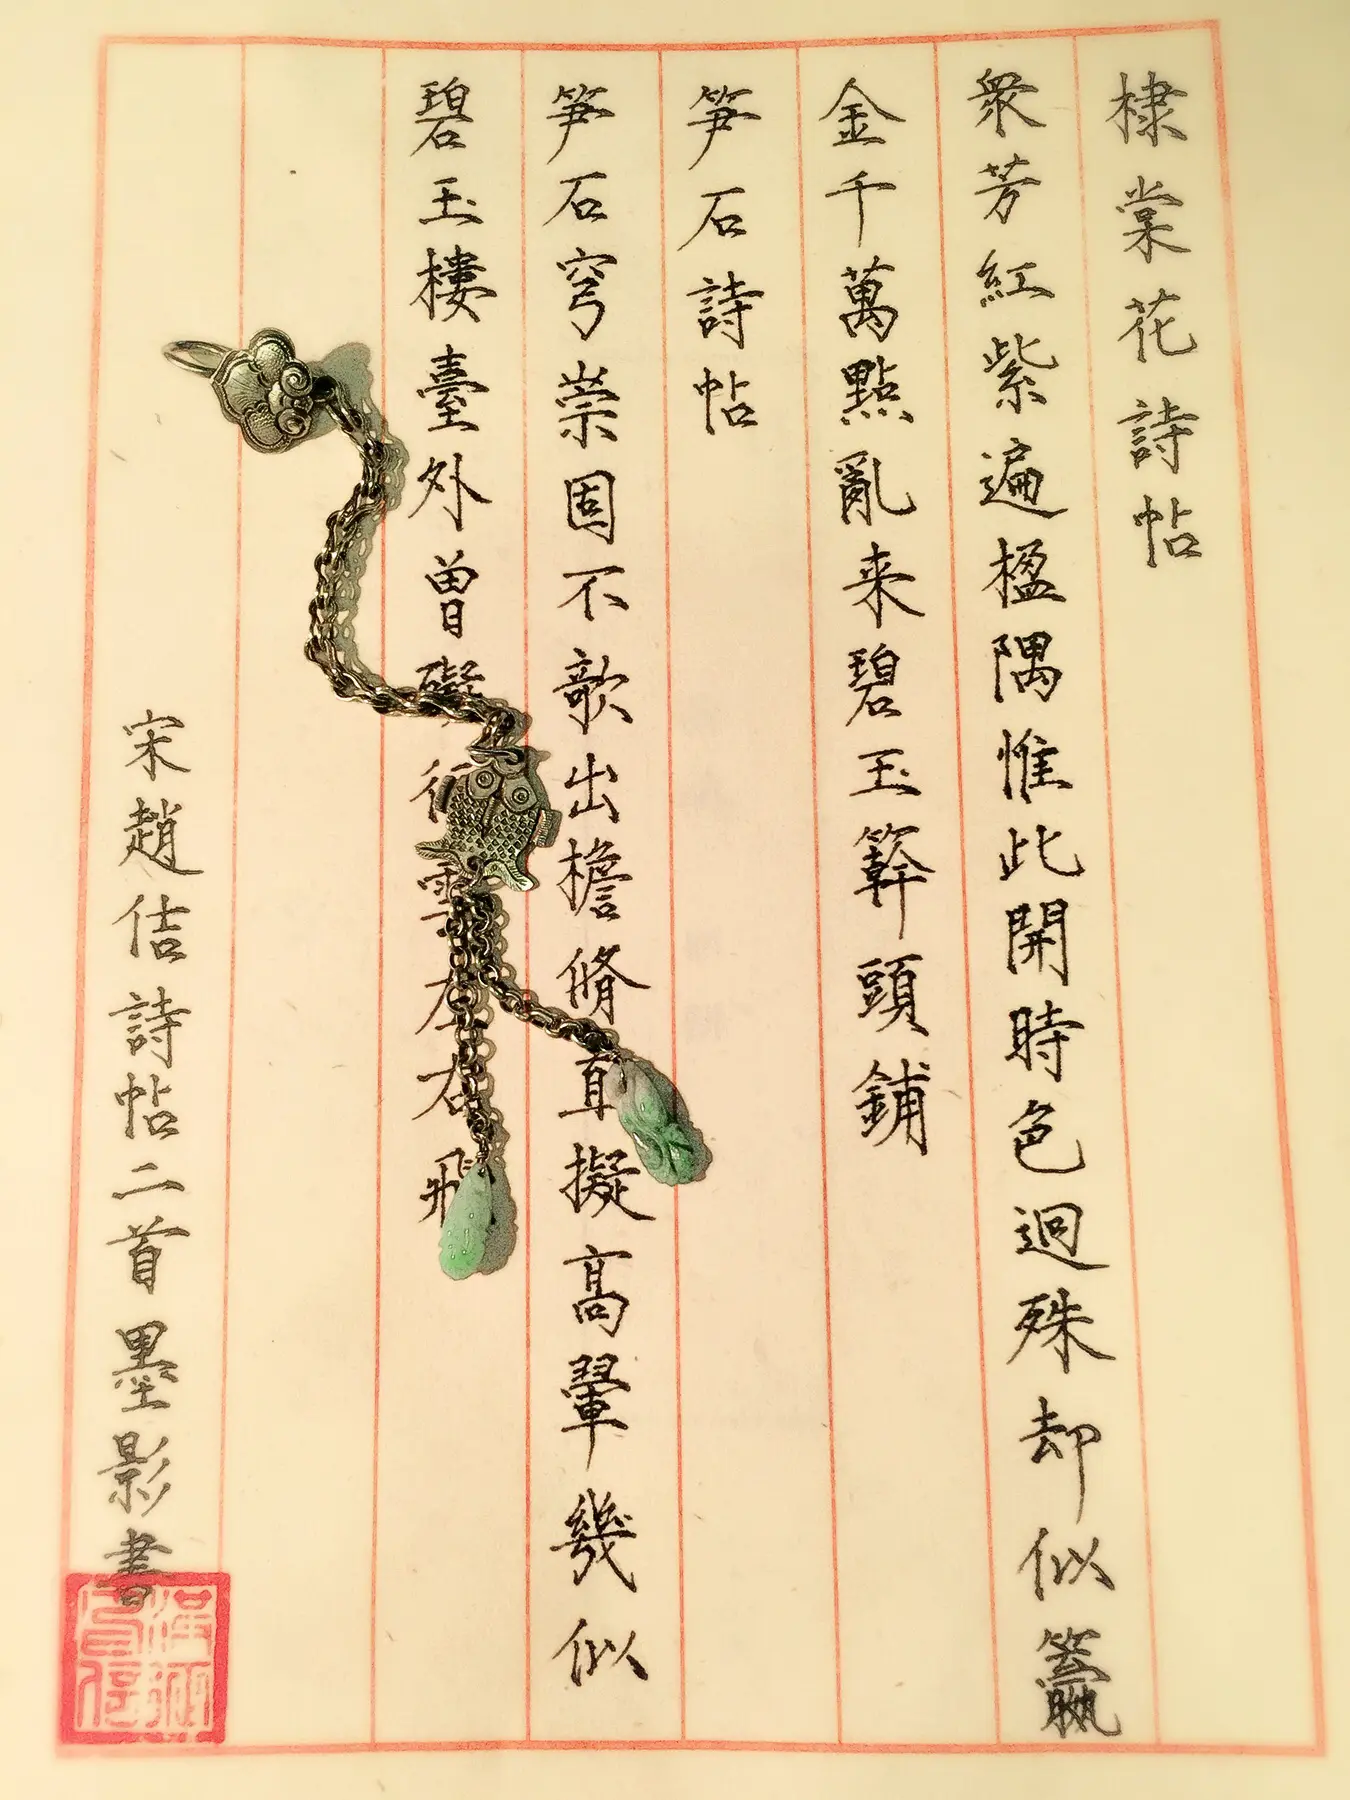 棣棠花詩帖
衆芳紅紫遍楹隅惟此開時色逈殊却似籝
金千萬點亂来碧玉簳頭鋪
笋石詩帖
笋石穹崇固不欹出檐脩直擬高翬幾似
碧玉樓臺外曾礙行雲左右飛
宋趙佶詩帖二首墨影書